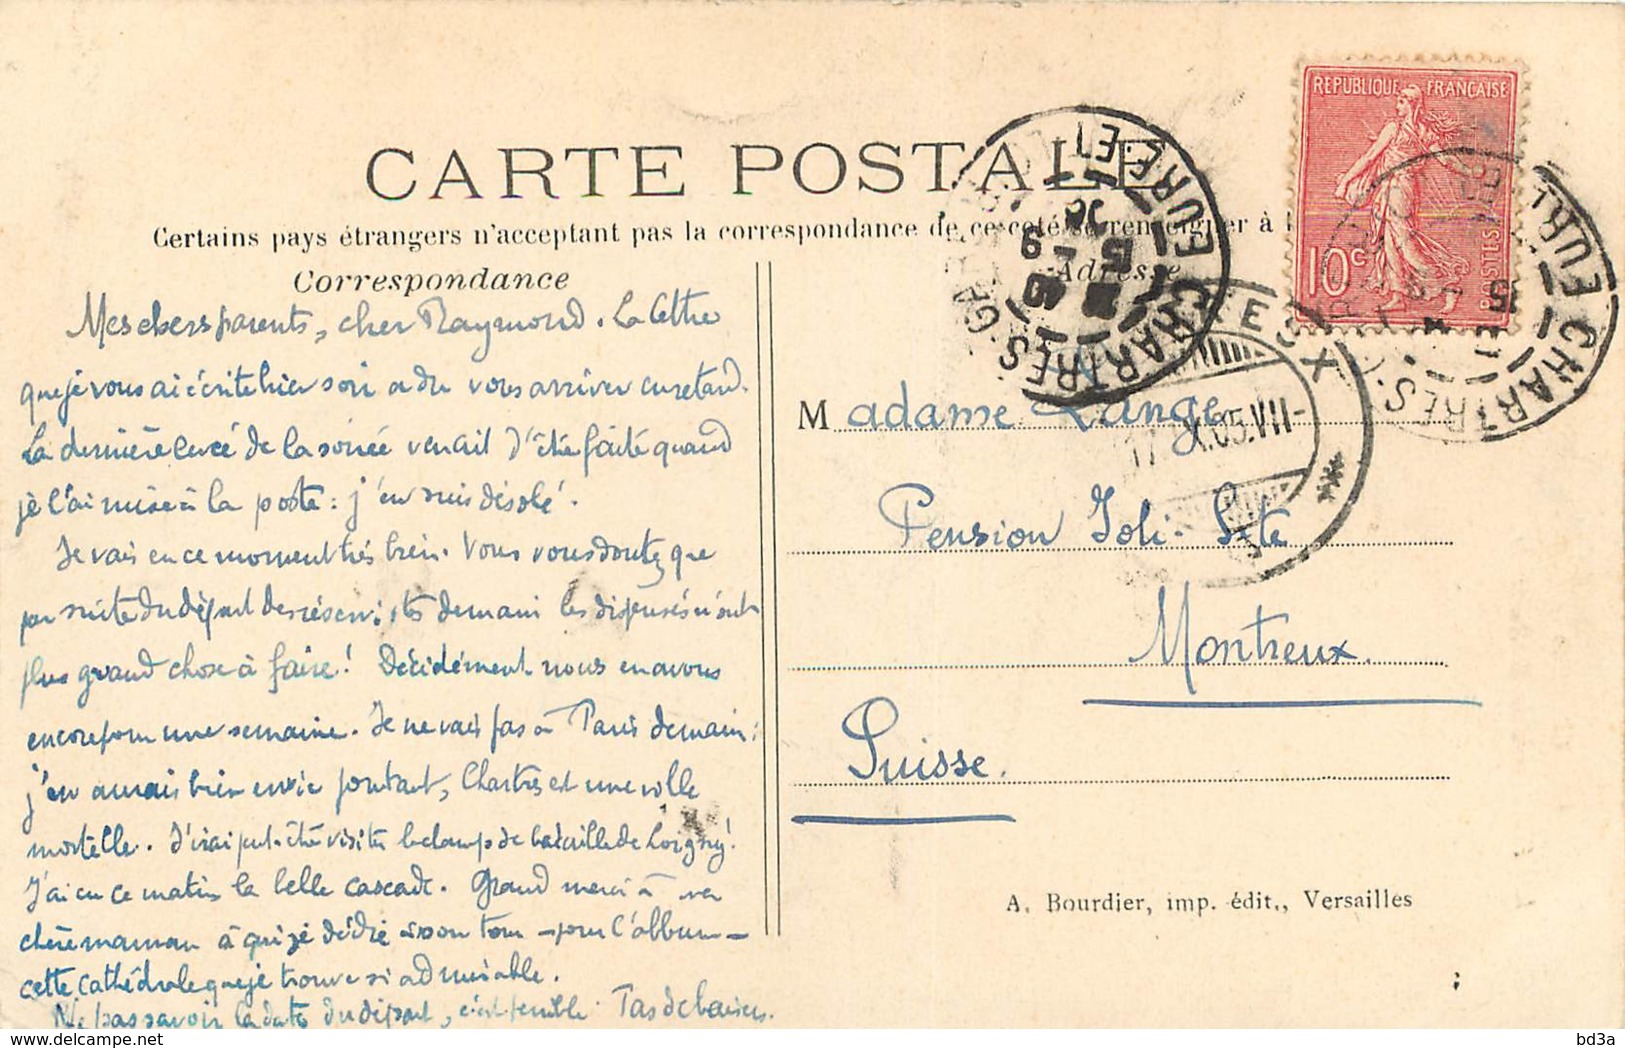 CARTE POSTALE
Certains pays étrangers n'acceptant pas la correspondance de ce coté se renseigner à l
Correspondance
Adresse
Mes chers parents, cher Raymond. La lettre
que je vous ai écrite hier soir a du vous arriver en retard.
La dernière levée de la soirée venait d'être faite quand
je l'ai mise à la poste : j'en suis désolé.
Je vais en ce moment très bien. Vous vous doutez que
par suite du départ des réservistes demain les dispensés n'ont
plus grand chose à faire ! Décidément nous en avons
encore pour une semaine. Je ne vais pas à Paris demain :
j'en aurais bien envie pourtant, Chartres est une ville
mortelle. J'irai peut-être visiter le champ de bataille de Loigny !
J'ai eu ce matin la belle cascade. Grand merci à ma
chère maman à qui je dédie à son tour - pour l'album -
cette cathédrale que je trouve si admirable.
Ne pas savoir la date du départ, c'est terrible. Tas de baisers.
REPUBLIQUE FRANÇAISE
10c
POSTES
CHARTRES GARE
EURE-ET-L
CHARTRES
EURE
EUX
X.05.VII-
Madame Lange
Pension Joli-Site
Montreux.
Suisse.
A. Bourdier, imp. édit., Versailles
www.delcampe.net
bd3a